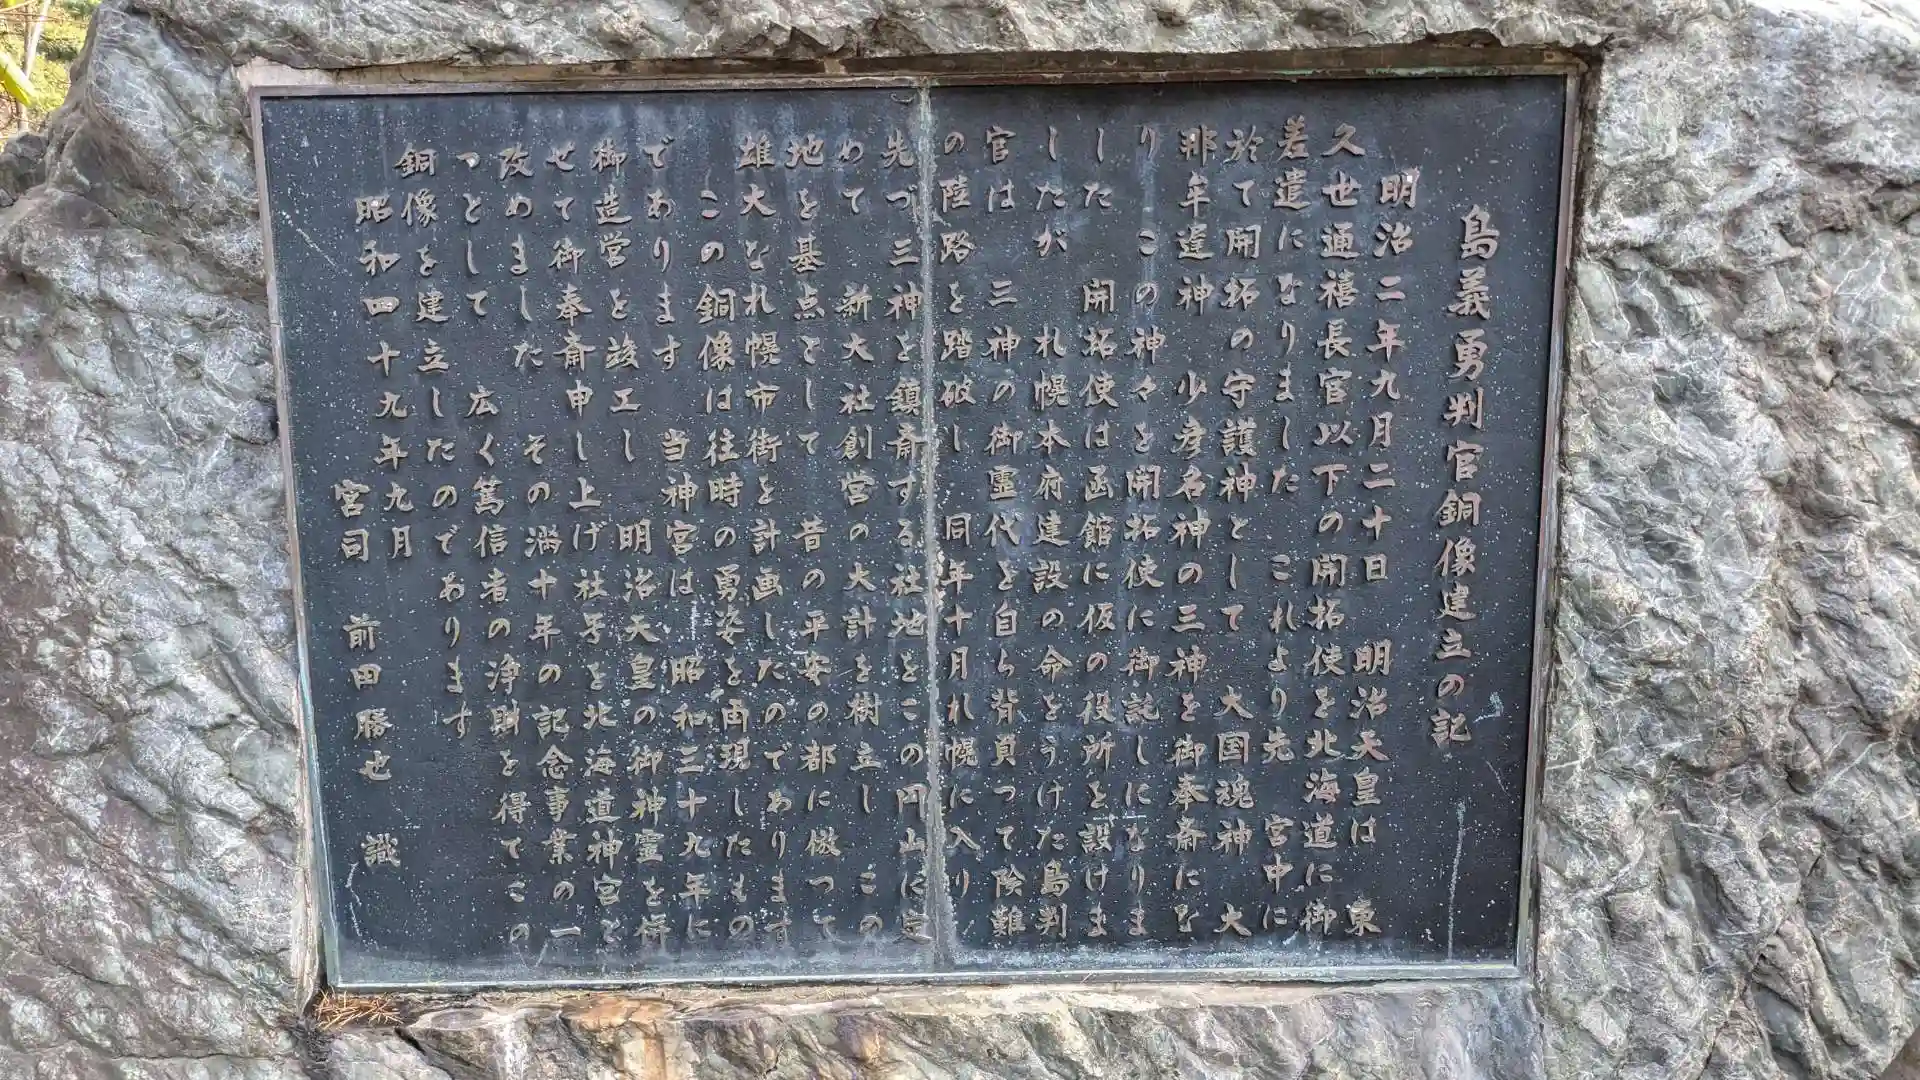 島義勇判官銅像建立の記
明治二年九月二十日 明治天皇は 東
久世通禧長官以下の開拓使を北海道に御
差遣になりました これより先 宮中に
於て開拓の守護神として 大国魂神 大
那牟遅神 少彦名神の三神を御奉斎にな
りこの神々を開拓使に御託しになりま
した 開拓使は函館に仮の役所を設けま
したが 札幌本府建設の命をうけた島判
官は 三神の御霊代を自ら背負って険難
の陸路を踏破し 同年十月札幌に入り
先づ三神を鎮斎する社地をこの円山に定
めて 新大社創営の大計を樹立し この
地を基点として 昔の平安の都に倣って
雄大なれ幌市街を計画したのであります
この銅像は往時の勇姿を再現したもの
であります 当神宮は 昭和三十九年に
御造営を竣工し 明治天皇の御神霊を併
せて御奉斎申し上げ社号を北海道神宮と
改めました その満十年の記念事業の一
つとして 広く篤信者の浄財を得てこの
銅像を建立したのであります
昭和四十九年九月
宮司 前田勝也 識